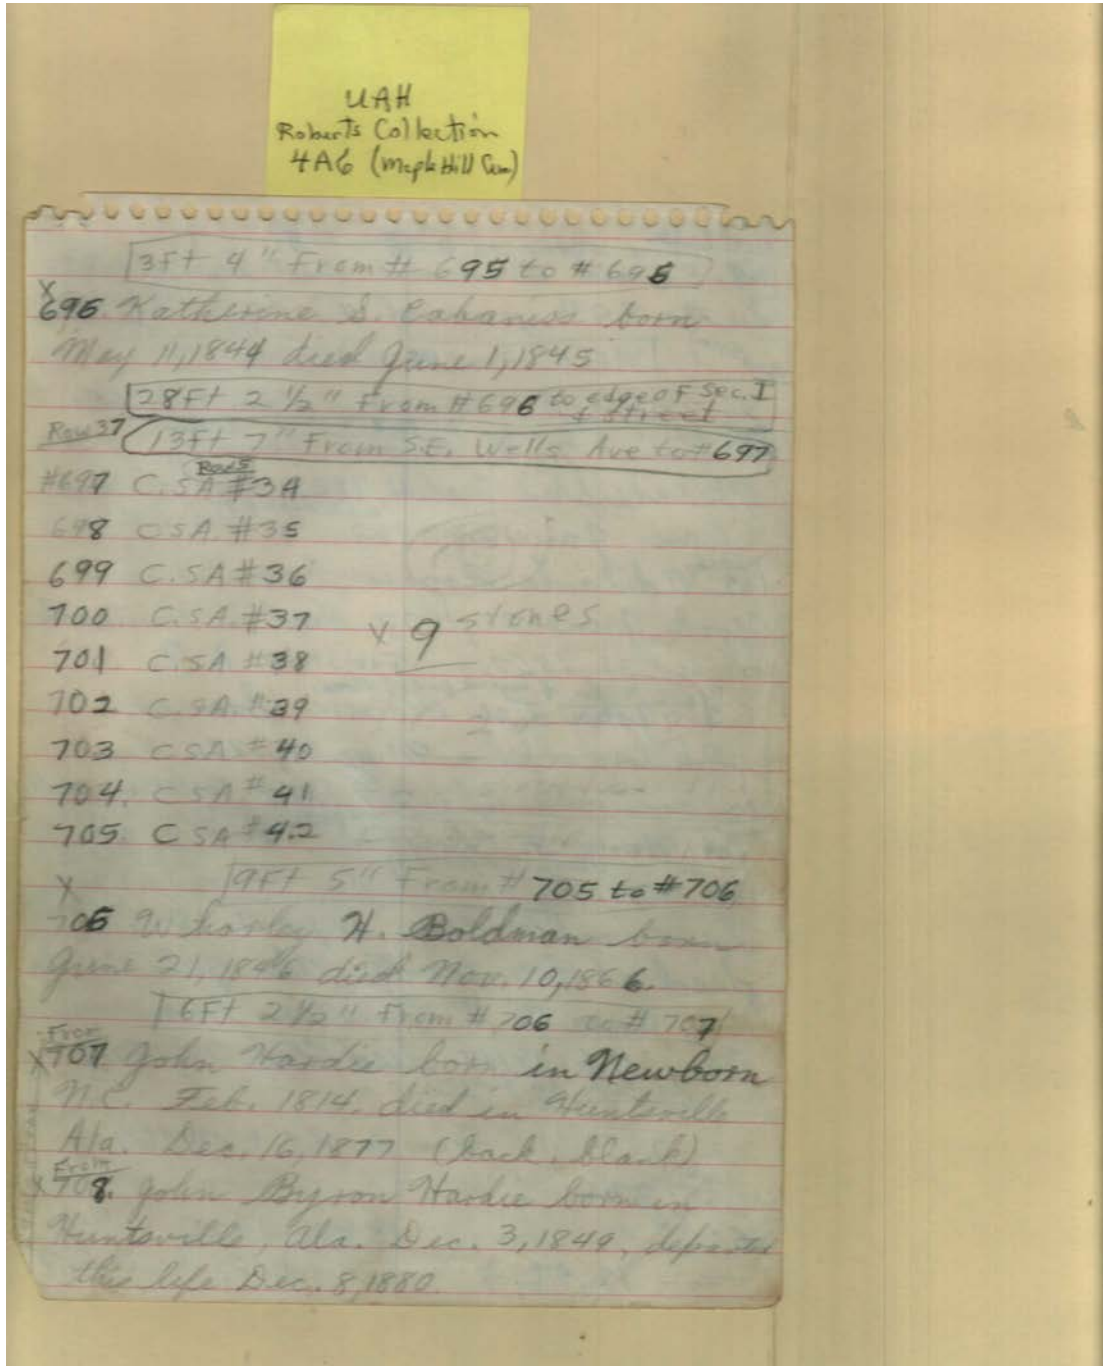 UAH
Roberts Collection
4A6 (Maple Hill Cem)
3Ft 4" From # 695 to # 696
X
696. Katherine S. Cabaniss born
May 11, 1844 died June 1, 1845
28Ft 2 1/2" From #696 to edge of Sec. I
& street
Row 37 13Ft 7" From S.E. Wells Ave to #697
Row 5
#697 C.SA #34
698 CSA. #35
699 C.SA #36
700 C.SA #37
X 9 stones
701 C.SA #38
702 C.SA. #39
703 CSA #40
704. CSA #41
705. CSA #42
X 9Ft 5" From # 705 to #706
706 H. Boldman born
June 21, died Nov. 10, 1866.
6Ft 2 1/2" From # 706 to # 707
From
X 707 John Hardie born in Newborn
N.C. Feb. 1814, died in Huntsville
Ala. Dec. 16, 1877 (back blank)
From
X 708. John Byron Hardie born in
Huntsville, Ala. Dec. 3, 1849, departed
this life Dec. 8, 1880.